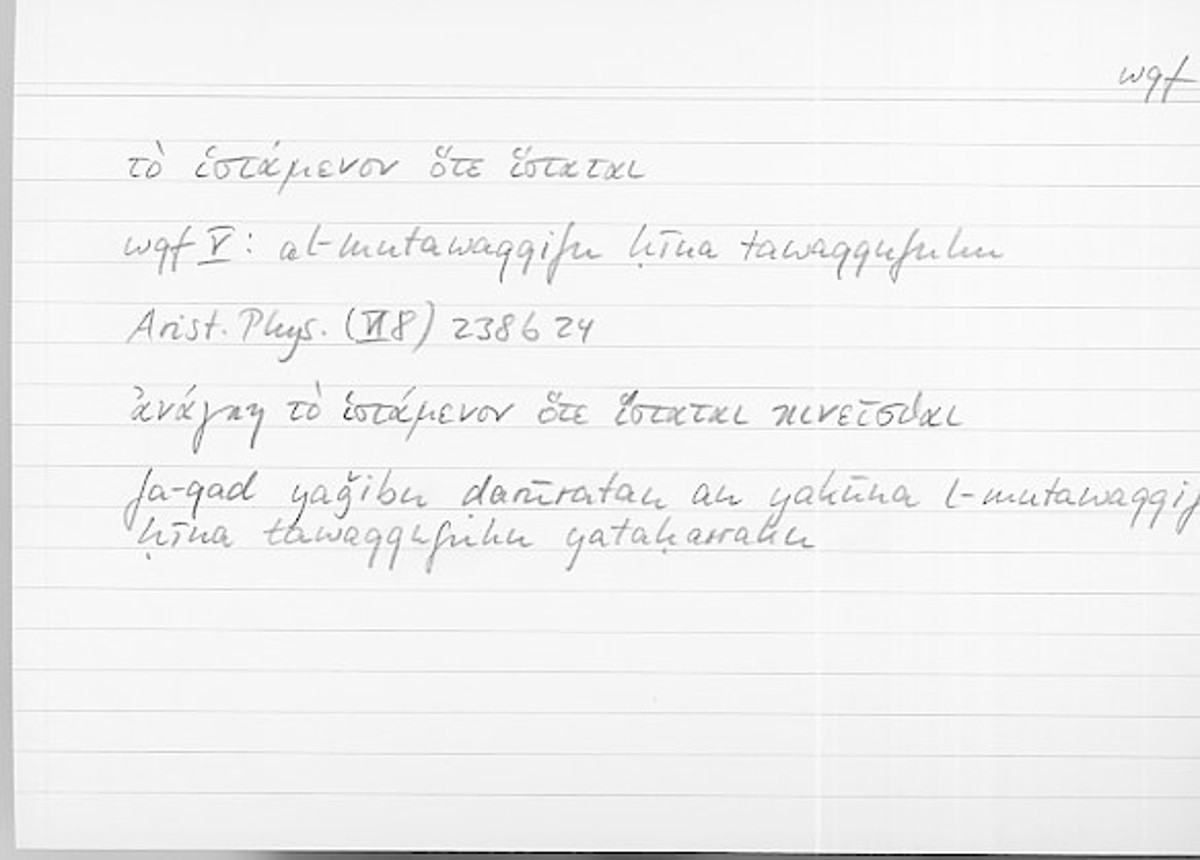 wqf
τὸ ἱστάμενον ὅτε ἵσταται
wqf V: al-mutawaqqifu ḥīna tawaqqufuhu
Arist. Phys. (VI 8) 238 b 24
ἀνάγκη τὸ ἱστάμενον ὅτε ἵσταται κινεῖσθαι
fa-qad yaǧibu darūratan an yakūna l-mutawaqqif
ḥīna tawaqqufuhu yataḥarraku